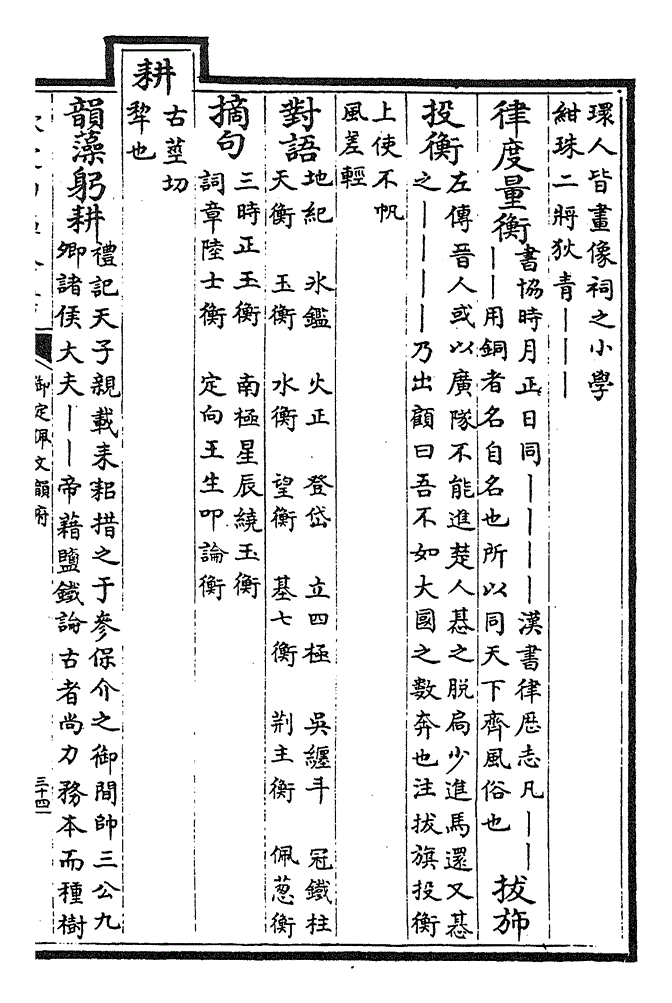 環人皆畫像祠之小學
紺珠二將狄青｜｜｜
律度量衡
書協時月正日同｜｜｜｜漢書律厯志凡｜｜
｜｜用銅者名自名也所以同天下齊風俗也
拔斾
投衡
左傳晉人或以廣隊不能進楚人惎之脱扃少進馬還又惎
之｜｜｜｜乃出顧曰吾不如大國之數奔也注拔旗投衡
上使不帆
風差輕
對語
地紀 氷鑑 火正 登岱 立四極 吳纏斗 冠鐵柱
天衡 玉衡 水衡 望衡 基七衡 荆主衡 佩蔥衡
摘句
三時正玉衡 南極星辰繞玉衡
詞章陸士衡 定向王生叩論衡
耕
古莖切
犂也
韻藻躬耕
禮記天子親載耒耜措之于參保介之御間帥三公九
卿諸侯大夫｜｜帝藉鹽鐵論古者尚力務本而種樹
御定佩文韻府
三十四